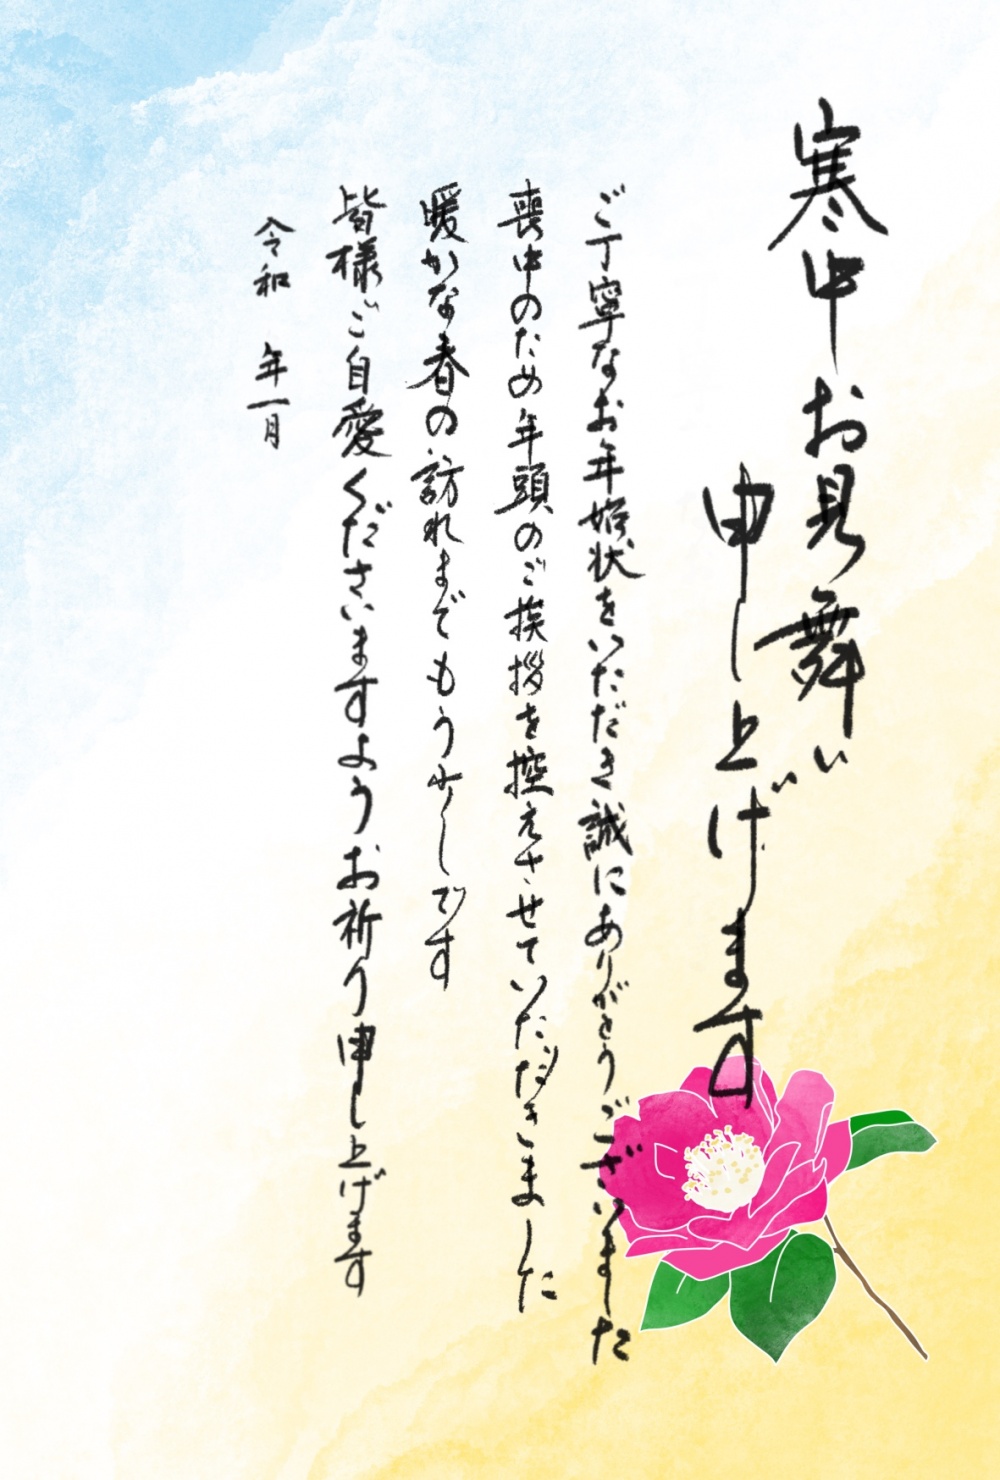 寒中お見舞い
申し上げます
ご丁寧なお年賀状をいただき誠にありがとうございました
喪中のため年頭のご挨拶を控えさせていただきました
暖かな春の訪れまでもう少しです
皆様ご自愛くださいますようお祈り申し上げます
令和　年一月